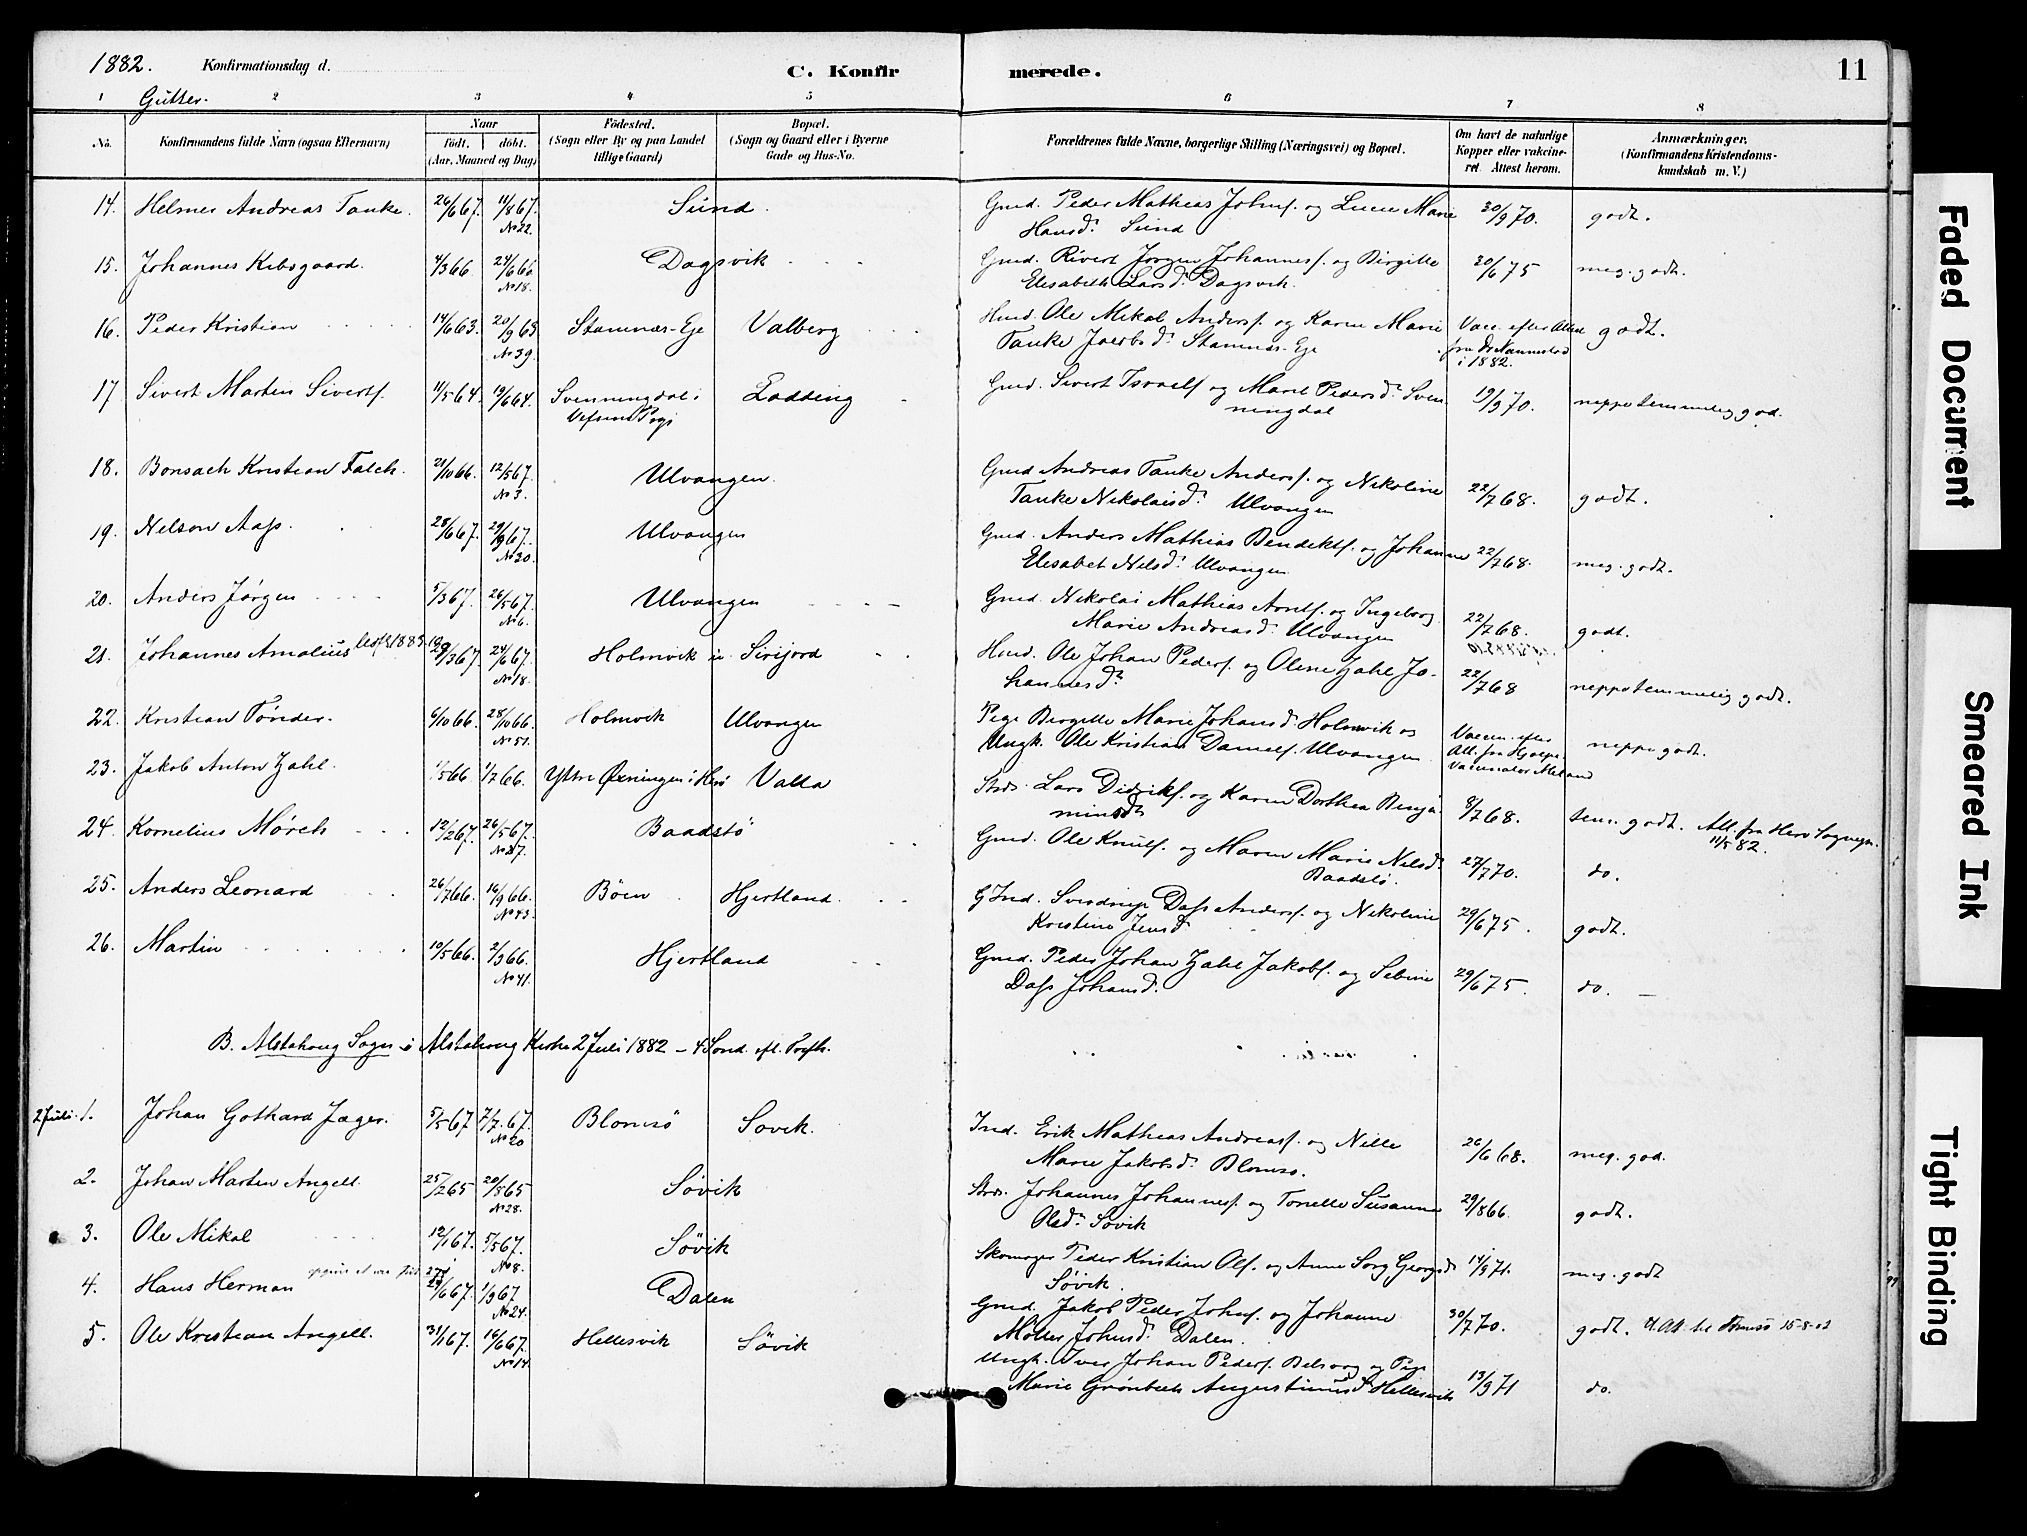 1882. Konfirmationsdag d. C. Konfirmerede. 11
Gutter.
1 2 3 4 5 6 7 8
No. Konfirmandens fulde Navn (ogsaa Efternavn) Naar födt. döbt. (Aar, Maaned og Dag) Födested. (Sogn eller By og paa Landet tillige Gaard) Bopæl. (Sogn og Gaard eller i Byerne Gade og Hus-No. Forældrenes fulde Navne, borgerlige Stilling (Næringsvei) og Bopæl. Om havt de naturlige Kopper eller vakcineret. Attest herom. Anmærkninger. (Konfirmandens Kristendomskundskab m. V.)
14. Helmer Andreas Tanke. 26/6 67. 11/8 67. No 22. Sund. Gmd. Peder Mathias Johnsf. og Lucie Marie Hansd. Sund 30/9 70. godt.
15. Johannes Kibsgaard. 4/3 66. 24/6 66 No 18. Dagsvik Gmd. Rivert Jørgen Johannesf. og Birgitte Elisabeth Larsd. Dagsvik. 30/6 75 meg. godt.
16. Peder Kristian 14/6 63. 20/9 63 No 39. Stamnæs-Eje Valberg Hmd. Ole Mikal Andersf. og Karen Marie Tanke Jacobsd. Stamnæs-Eje Vacc. efter Attest fra Dr i 1882. godt.
17 Sivert Martin Sivertsf. 11/5 64. 19/6 64. Svenningdal i Vefsens Pgj Lodding Gmd. Sivert Israelsf og Maret Pedersd. Svenningdal 19/9 70. neppe temmelig god.
18. Bonsach Kristian Falch. 21/10 66. 12/5 67. No 3. Ulvangen. Gmd Andreas Tanke Andersf. og Nikoline Tanke Nikolaisd. Ulvangen 22/7 68. godt.
19. Nelson Aas. 28/6 67. 29/9 67. No 30. Ulvangen Gmd. Anders Mathias Bendiktsf. og Johanna Elisabet Nilsd. Ulvangen 22/7 68. meg. godt.
20. Anders Jørgen 5/3 67. 26/5 67. No 6. Ulvangen Gmd. Nikolai Mathias Arntsf. og Ingeborg Marie Andreasd. Ulvangen 22/7 68. godt.
21. Johannes Amalius 1885 29/3 67. 24/6 67. No 18. Holmvik Sirifjord Hmd. Ole Johan Pedersf. og Olene Zahl Johannesd. 22/7 68 neppe temmelig godt.
22. Kristian Tönder. 6/10 66. 28/10 66. No 51. Holmvik Ulvangen Pige Birgitte Marie Johansd. Holmvik og Ungk. Ole Kristian Danielsf. Ulvangen. Vaccin. efter Att. fra Hjælpevaccinatør neppe godt.
23. Jakob Anton Zahl. 1/5 66. 1/7 66. Yttre Øxningen i Herö Valla Strds. Lars Didriksf. og Karen Dorthea Benjaminsd. 8/7 68. tem. godt. Att. fra Herö Sogn 11/5 82.
24. Kornelius Mörch 12/2 67. 26/5 67. No 27. Baadstö Gmd. Ole Knutsf. og Maren Marie Nilsd. Baadstö. 27/7 70. do.
25. Anders Leonard 26/7 66. 16/9 66. No 43. Böen Hjertland. Ind. Sverdrup Dass Andersf. og Nikoline Kristine Jensd. 29/6 75. godt.
26. Martin 10/5 66. 2/9 66. No 41. Hjertland Gmd. Peder Johan Zahl Jakobsf. og Sebine Dass Johansd. 29/6 75. do.
B. Alstahoug Sogn i Alstahoug Kirke 2 Juli 1882 - 4 Sond. eft.
2 Juli. 1. Johan Gothard Jæger. 5/5 67 7/7 67. No 20 Blomsö Sövik. Ind. Erik Mathias Andreasf. og Nille Marie Jakobsd. Blomsö. 26/6 68. meg. god.
2. Johan Marten Angell. 25/2 65 20/8 65 No 28. Sövik Strds. Johannes Johannesf. og Tonette Susanna Olsd. Sövik 29/8 66. godt.
3. Ole Mikal 12/1 67. 5/5 67. No 8. Sövik Skomager Peder Kristian Olsf. og Anne Sorg Georgsd. Sövik. 14/9 71. meg. godt
4. Hans Herman 29/6 67. 1/9 67 No 24. Dalen Gmd. Jakob Peder Johnsf. og Johanna Möller Johnsd. Dalen. 30/7 70. godt. 15-8-02
5. Ole Kristian Angell. 31/1 67. 16/6 67. No 14. Hellesvik Sövik Ungk. Iver Johan Pedersf. Belsvåg og Pige Marie Grönbech Augustinusd. Hellesvik 13/9 71 do.
Faded Document
Smeared Ink
Tight Binding